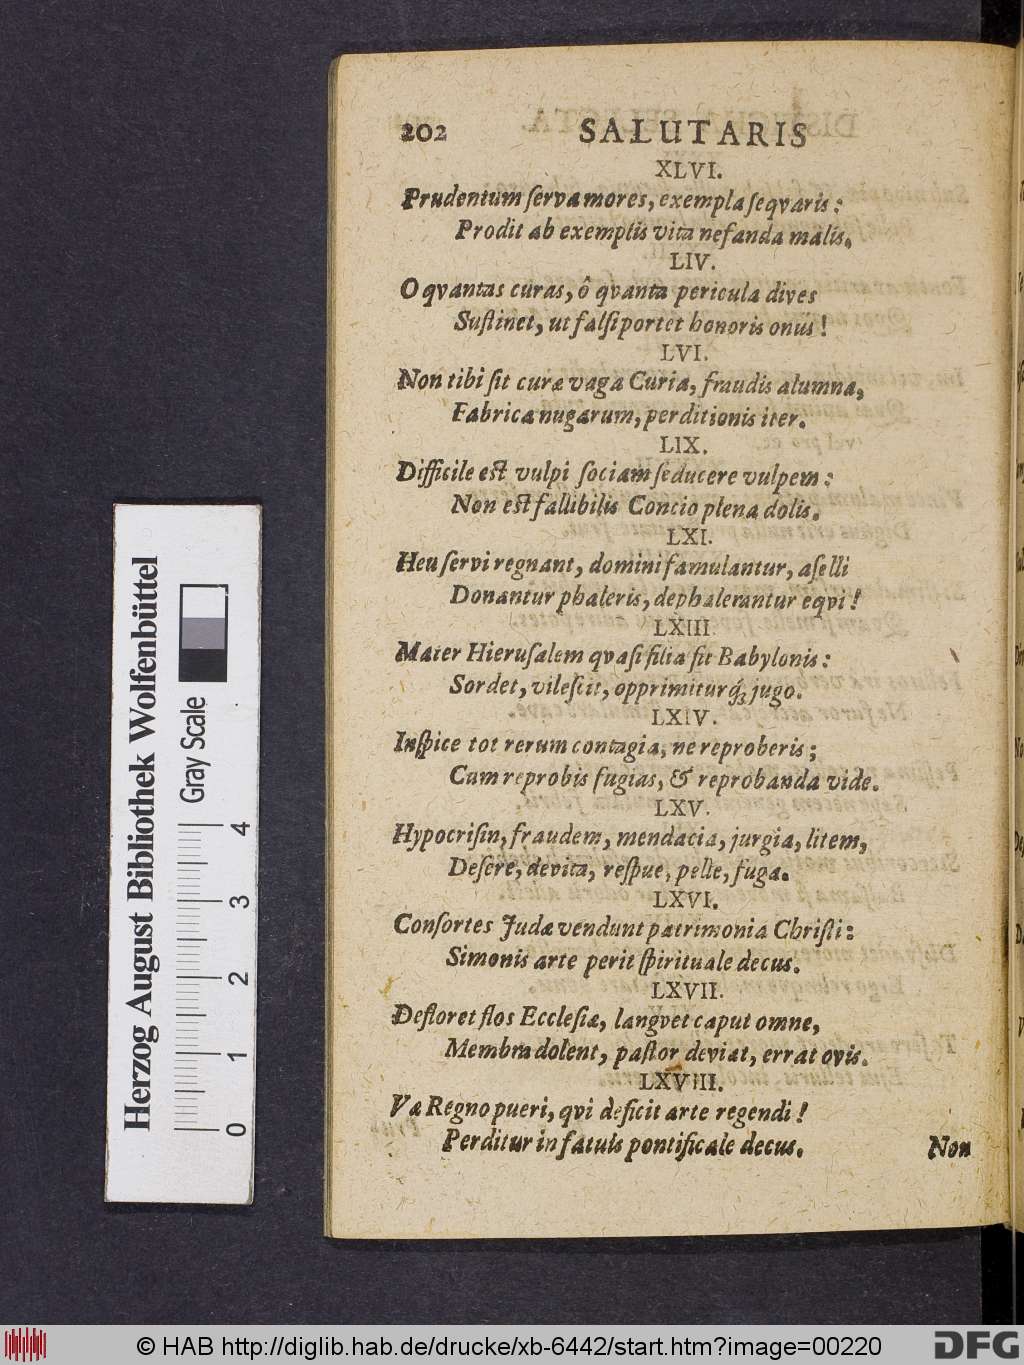 202 SALUTARIS
XLVI.
Prudentum ſerva mores, exempla ſeqvaris:
Prodit ab exemplis vita nefanda malis.
LIV.
O qvantas curas, ô qvanta pericula dives
Suſtinet, ut falſi portet honoris onus!
LVI.
Non tibi ſit curæ vaga Curia, fraudis alumna,
Fabrica nugarum, perditionis iter.
LIX.
Difficile eſt vulpi ſociam ſeducere vulpem:
Non eſt fallibilis Concio plena dolis.
LXI.
Heu ſervi regnant, domini famulantur, aſelli
Donantur phaleris, dephalerantur eqvi!
LXIII
Mater Hieruſalem qvaſi filia fit Babylonis:
Sordet, vileſcit, opprimiturq́; jugo.
LXIV.
Inſpice tot rerum contagia, ne reproberis;
Cum reprobis fugias, & reprobanda vide.
LXV.
Hypocriſin, fraudem, mendacia, jurgia, litem,
Deſere, devita, reſpue, pelle, fuga.
LXVI.
Conſortes Judæ vendunt patrimonia Chriſti:
Simonis arte perit ſpirituale decus.
LXVII.
Defloret flos Eccleſiæ, langvet caput omne,
Membra dolent, paſtor deviat, errat ovis.
LXVIII.
Væ Regno pueri, qvi deficit arte regendi!
Perditur in fatuis pontificale decus.
Non
Herzog August Bibliothek Wolfenbüttel
Gray Scale
0 1 2 3 4
© HAB http://diglib.hab.de/drucke/xb-6442/start.htm?image=00220
DFG